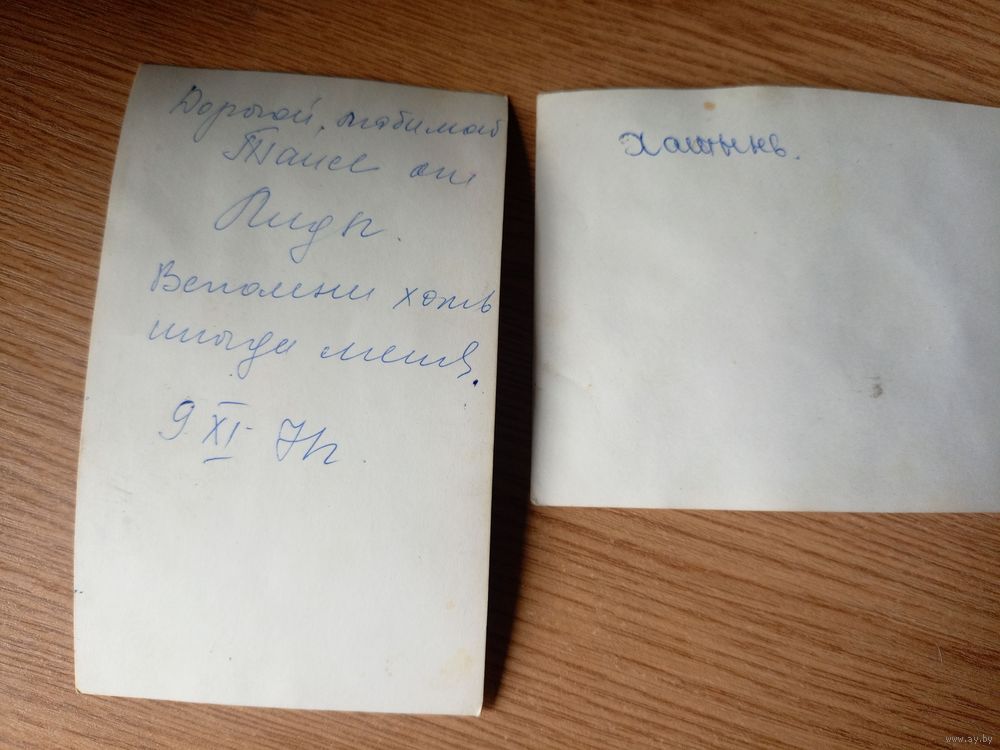 Дорогой, любимой
Таисе от
Лиды.
Вспомни хоть
иногда меня.
9 XI- 71г.
Хатынь.
www.ay.by